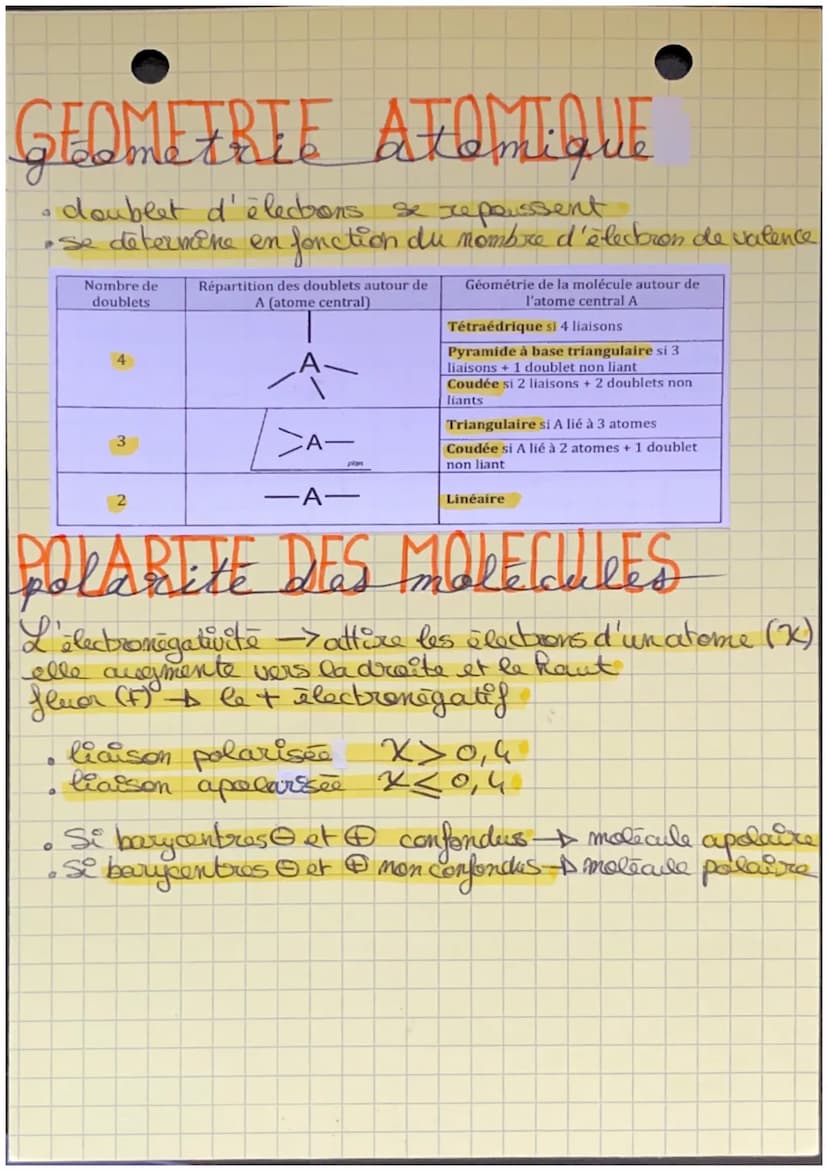 GEOMETRIE ATOMIQUE
géometrie atomique
• doublet d'élèctrons se repoussent
• se détermine en fonction du nombre d'élèctron de valence
Nombre de doublets
Répartition des doublets autour de A (atome central)
Géométrie de la molécule autour de l'atome central A
4
A
Tétraédrique si 4 liaisons
Pyramide à base triangulaire si 3 liaisons + 1 doublet non liant
Coudée si 2 liaisons + 2 doublets non liants
3
A
plan
Triangulaire si A lié à 3 atomes
Coudée si A lié à 2 atomes + 1 doublet non liant
2
A
Linéaire
POLARITE DES MOLECULES
polarité des molécules
L'électronégativité → attire les électrons d'un atome (χ)
elle augmente vers la droite et le haut
fluor (F) → le + électronégatif
• liaison polarisée χ > 0,4
• liaison apolarisée χ ≤ 0,4
• Si barycentres ⊖ et ⊕ confondus → molécule apolaire
• Si barycentres ⊖ et ⊕ non confondus → molécule polaire